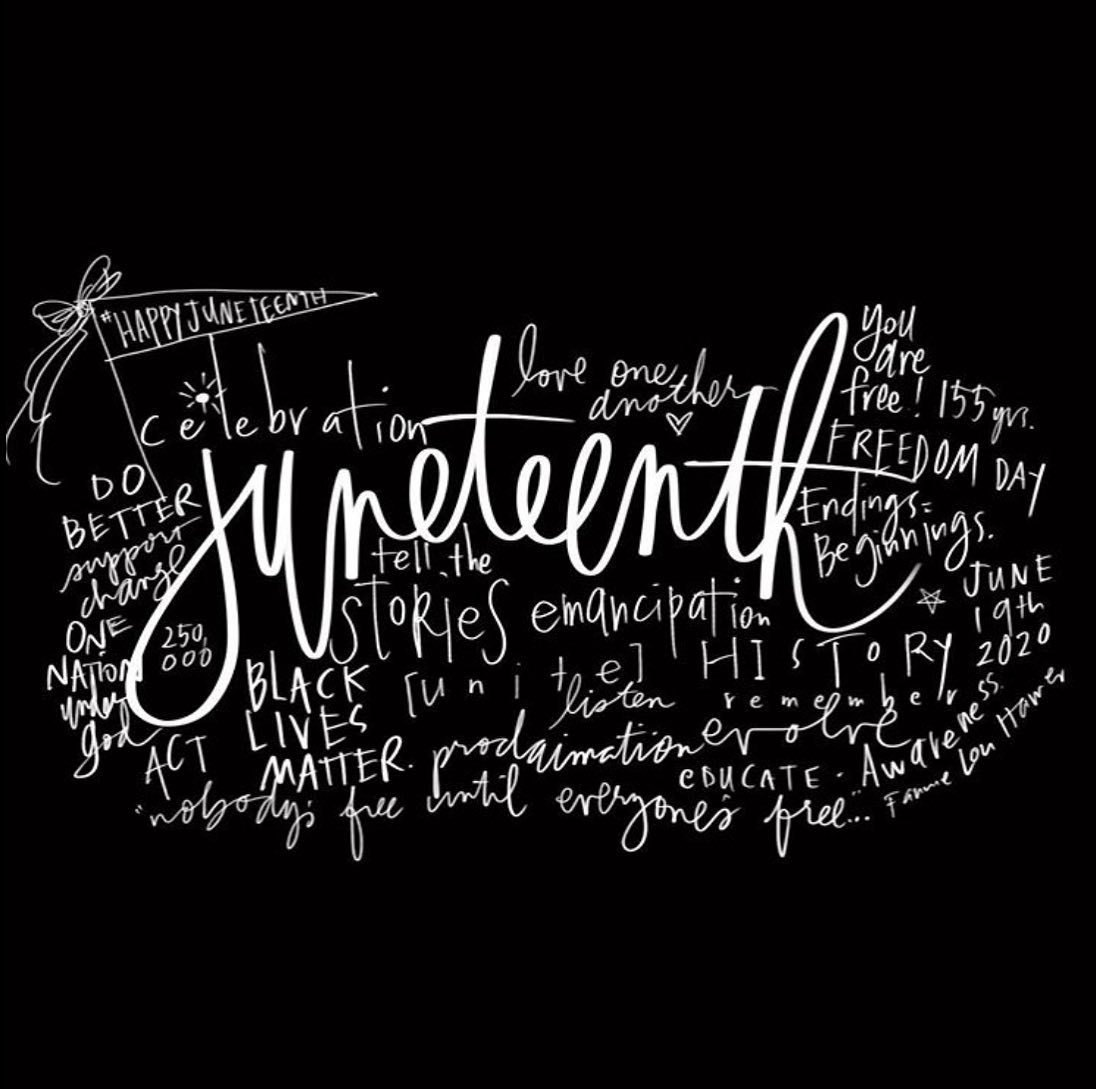 #HAPPYJUNETEENTH
celebration
love one
another
you
are
free! 155 yrs.
FREEDOM DAY
juneteenth
Endings=
Beginnings.
DO
BETTER
support
change
ONE
NATION
under
god
250,
000
tell the
STORIES
emancipation
JUNE
19th
2020
BLACK
LIVES
MATTER.
[unite]
HISTORY
listen
remember
ACT
proclaimation
evolve
EDUCATE.
Awareness.
"nobody's free until everyone's free..."
Fannie Lou Hamer